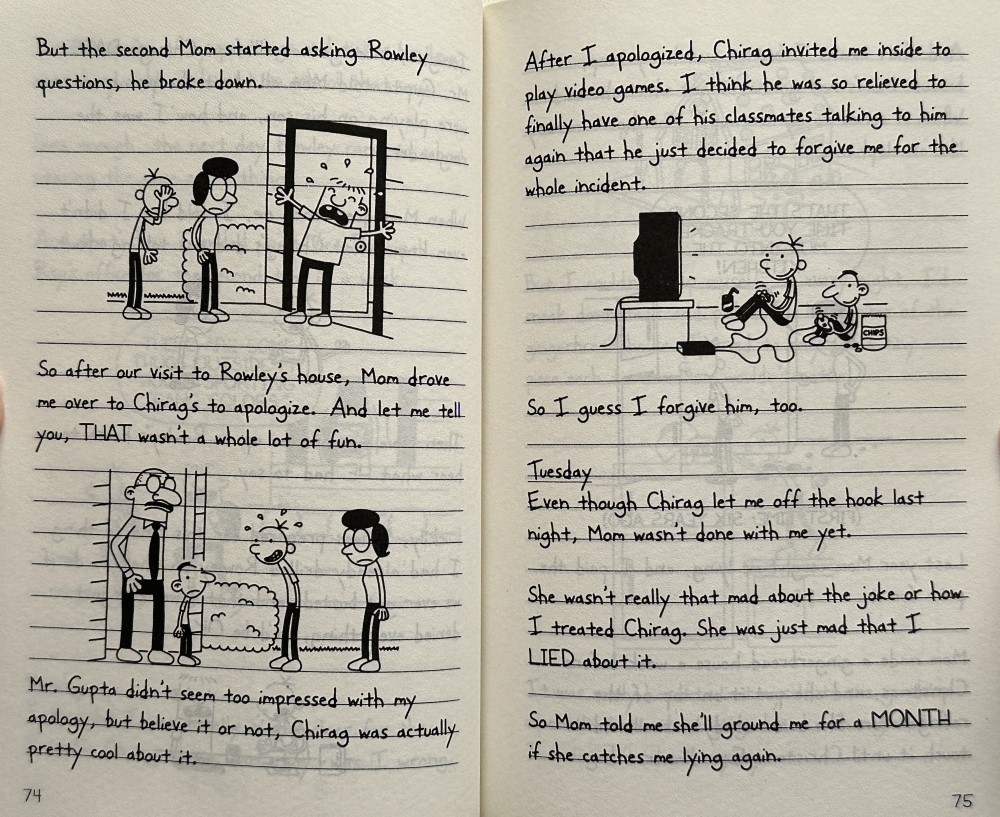 But the second Mom started asking Rowley
questions, he broke down.
So after our visit to Rowley's house, Mom drove
me over to Chirag's to apologize. And let me tell
you, THAT wasn't a whole lot of fun.
Mr. Gupta didn't seem too impressed with my
apology, but believe it or not, Chirag was actually
pretty cool about it.
74
After I apologized, Chirag invited me inside to
play video games. I think he was so relieved to
finally have one of his classmates talking to him
again that he just decided to forgive me for the
whole incident.
CHIPS
So I guess I forgive him, too.
Tuesday
Even though Chirag let me off the hook last
night, Mom wasn't done with me yet.
She wasn't really that mad about the joke or how
I treated Chirag. She was just mad that I
LIED about it.
So Mom told me she'll ground me for a MONTH
if she catches me lying again.
75